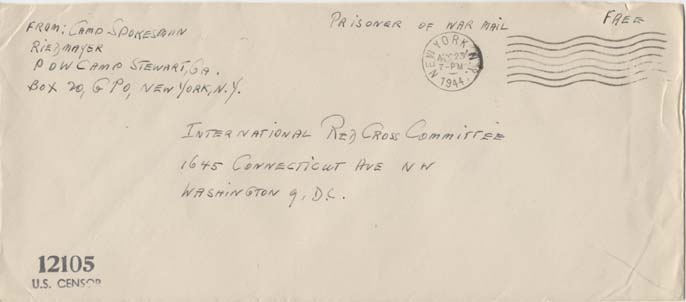 From: Camp Spokesman
Riedmayer
POW Camp Stewart, Ga.
Box 20, G P O, New York, N.Y.
Prisoner of War Mail
Free
NEW YORK, N.Y.
7-PM
1944
International Red Cross Committee
1645 Connecticut Ave NW
Washington 9, D.C.
12105
U.S. CENSOR